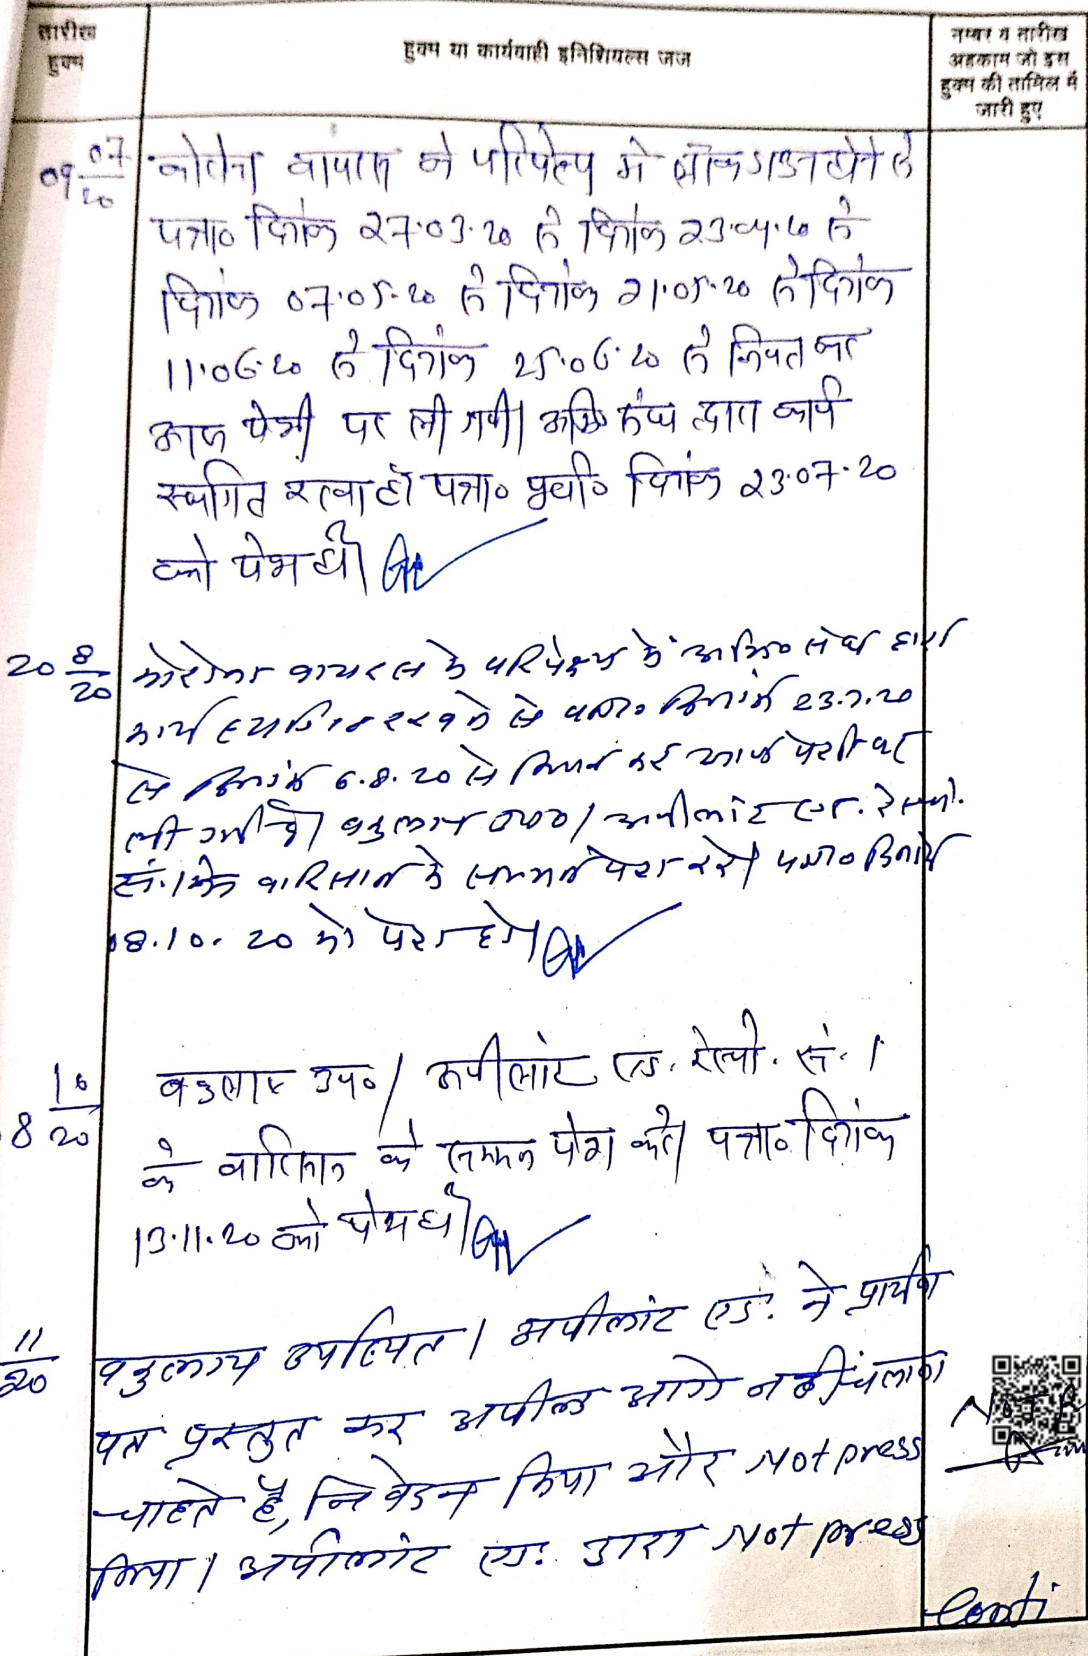 तारीख
हुक्म
हुक्म या कार्यवाही इनिशियल्स जज
नम्बर व तारीख
अहकाम जो इस
हुक्म की तामिल में
जारी हुए
09 07/20
कोरोना वायरस के परिपेक्ष्य में लॉकडाउन होने से
पत्रा० दिनांक 27.03.20 से दिनांक 23.04.20 से
दिनांक 07.05.20 से दिनांक 21.05.20 से दिनांक
11.06.20 से दिनांक 25.06.20 से नियत कर
आज पेशी पर ली गयी। अभि० संघ द्वारा कार्य
स्थगित पत्रा० दिनांक 23.07.20
को पेश हो।
20 8/20
कोरोना वायरस के परिपेक्ष्य में अभि० संघ द्वारा
कार्य स्थगित रखने से पत्रा० दिनांक 23.7.20
से दिनांक 6.8.20 से नियत कर आज पेशी पर
ली गयी है। वकुलाय उप०। अपीलांट एड. रेस्पो.
सं. 1 के वारिसान के सम्मन पेश करे। पत्रा० दिनांक
08.10.20 को पेश हो।
8 10/20
वकुलाय उप०। अपीलांट एड. रेस्पो. सं. 1
के वारिसान के सम्मन पेश करे। पत्रा० दिनांक
13.11.20 को पेश हो।
11/20
वकुलाय उपस्थित। अपीलांट एड. ने प्रार्थना
पत्र प्रस्तुत कर अपील आगे नहीं चलाना
चाहते है, निवेदन किया और Not press
किया। अपीलांट एड. द्वारा Not press
Conti